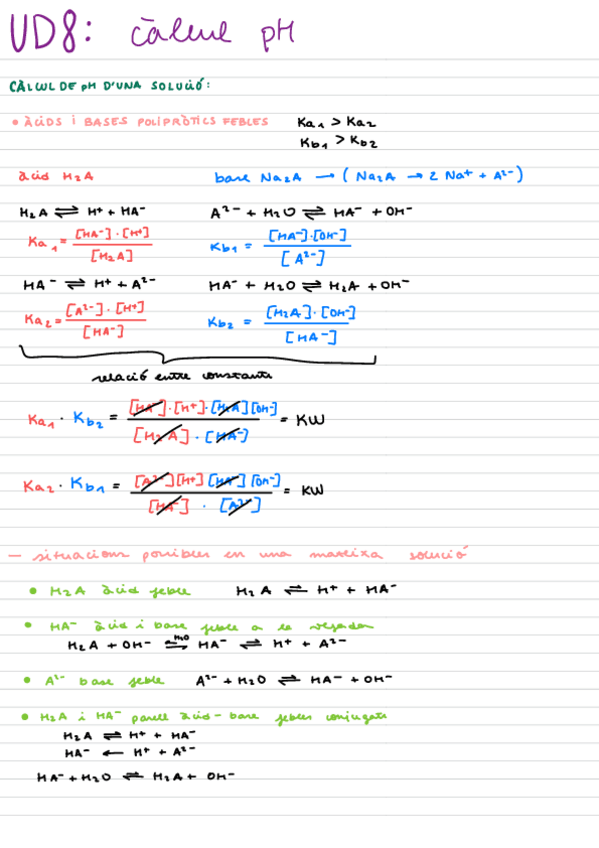 UD8: càlcul pH
CÀLCUL DE pH D'UNA SOLUCIÓ:
• ÀCIDS I BASES POLIPRÒTICS FEBLES Ka₁ > Ka₂
Kb₁ > Kb₂
àcid H₂A base Na₂A → (Na₂A → 2 Na⁺ + A²⁻)
H₂A ⇌ H⁺ + HA⁻ A²⁻ + H₂O ⇌ HA⁻ + OH⁻
Ka₁ = [HA⁻]·[H⁺] / [H₂A] Kb₁ = [HA⁻]·[OH⁻] / [A²⁻]
HA⁻ ⇌ H⁺ + A²⁻ HA⁻ + H₂O ⇌ H₂A + OH⁻
Ka₂ = [A²⁻]·[H⁺] / [HA⁻] Kb₂ = [H₂A]·[OH⁻] / [HA⁻]
relació entre constants
Ka₁ · Kb₂ = [HA⁻]·[H⁺]·[H₂A][OH⁻] / [H₂A]·[HA⁻] = KW
Ka₂ · Kb₁ = [A²⁻][H⁺][HA⁻][OH⁻] / [HA⁻]·[A²⁻] = KW
— situacions possibles en una mateixa solució
• H₂A àcid feble H₂A ⇌ H⁺ + HA⁻
• HA⁻ àcid i base feble a la vegada
H₂A + OH⁻ ⇌ HA⁻ ⇌ H⁺ + A²⁻
• A²⁻ base feble A²⁻ + H₂O ⇌ HA⁻ + OH⁻
• H₂A i HA⁻ parell àcid-base febles conjugats
H₂A ⇌ H⁺ + HA⁻
HA⁻ ← H⁺ + A²⁻
HA⁻ + H₂O ⇌ H₂A + OH⁻